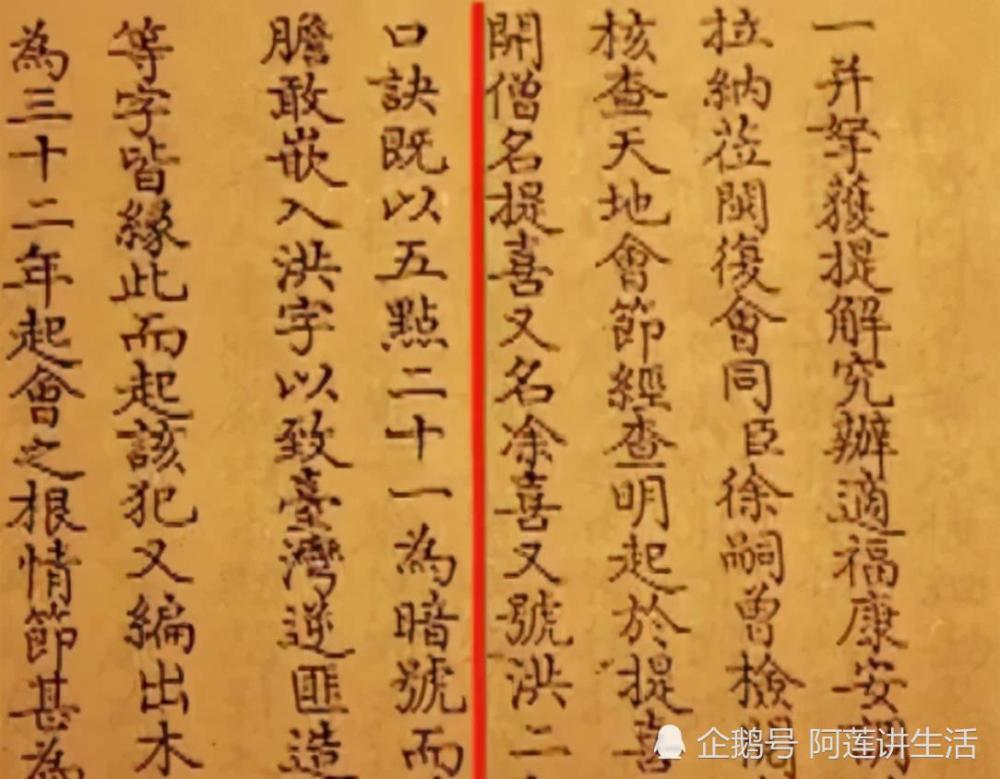 一并拏獲提解究辦適福康安調
拉納蒞閩復會同臣徐嗣曾檢閱
核查天地會節經查明起於提喜
開僧名提喜又名凃喜又號洪二
口訣既以五點二十一為暗號而
膽敢嵌入洪字以致臺灣逆匪造
等字皆緣此而起該犯又編出木
為三十二年起會之根情節甚為
企鹅号 阿莲讲生活